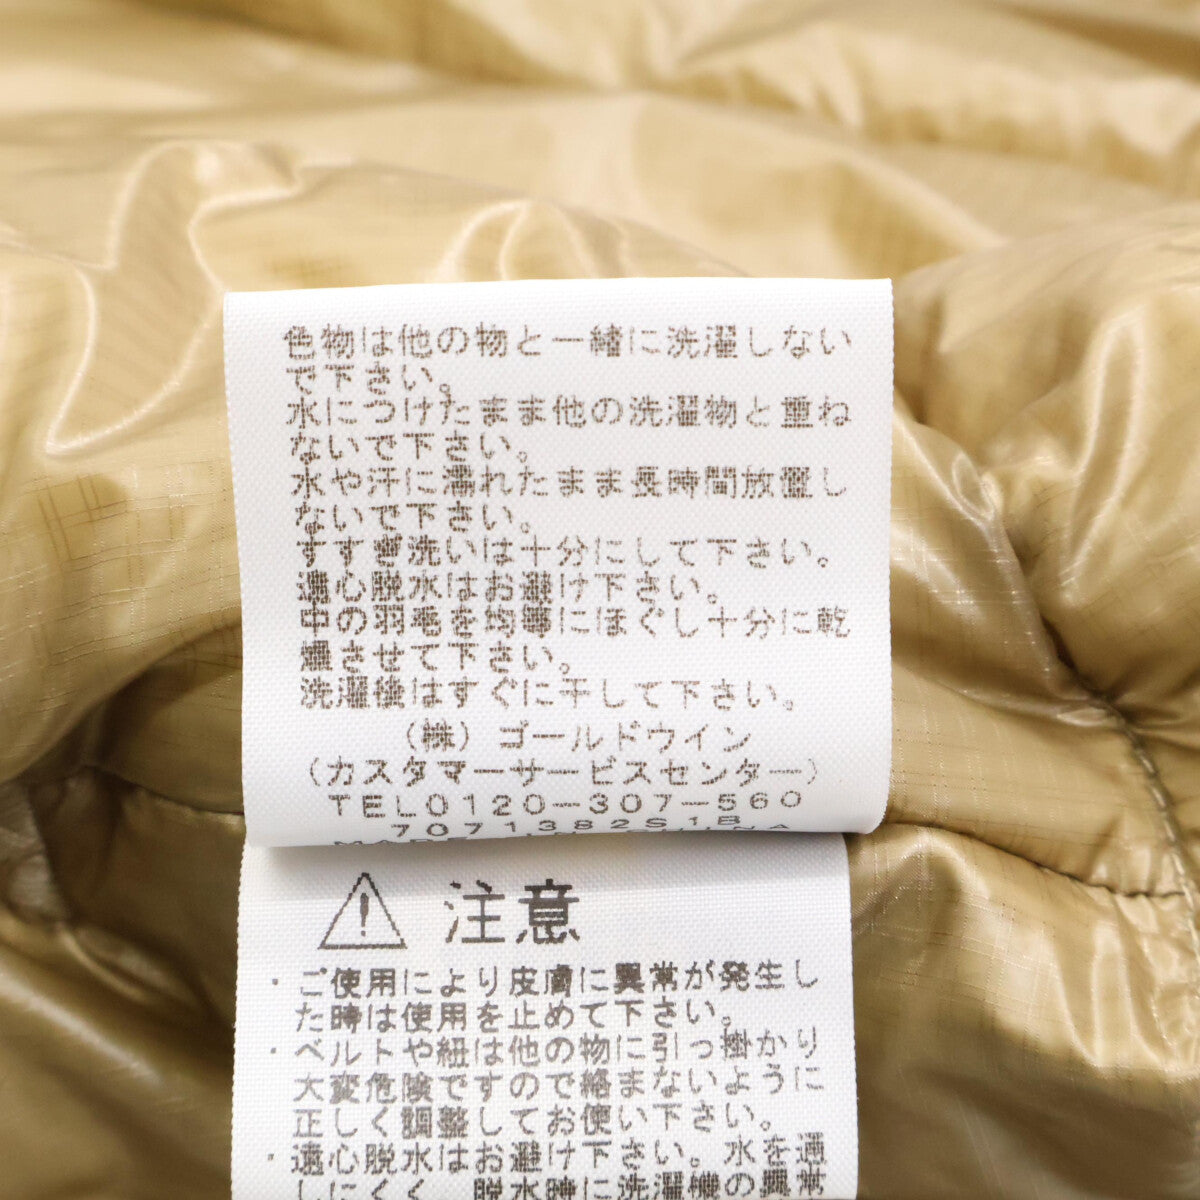 色物は他の物と一緒に洗濯しない
で下さい。
水につけたまま他の洗濯物と重ね
ないで下さい。
水や汗に濡れたまま長時間放置し
ないで下さい。
すすぎ洗いは十分にして下さい。
遠心脱水はお避け下さい。
中の羽毛を均等にほぐし十分に乾
燥させて下さい。
洗濯後はすぐに干して下さい。
(株)ゴールドウイン
(カスタマーサービスセンター)
TEL0120-307-560
7071382S1B
注意
・ご使用により皮膚に異常が発生し
た時は使用を止めて下さい。
・ベルトや紐は他の物に引っ掛かり
大変危険ですので絡まないように
正しく調整してお使い下さい。
・遠心脱水はお避け下さい。水を通
しにくく、脱水時に洗濯機の異常